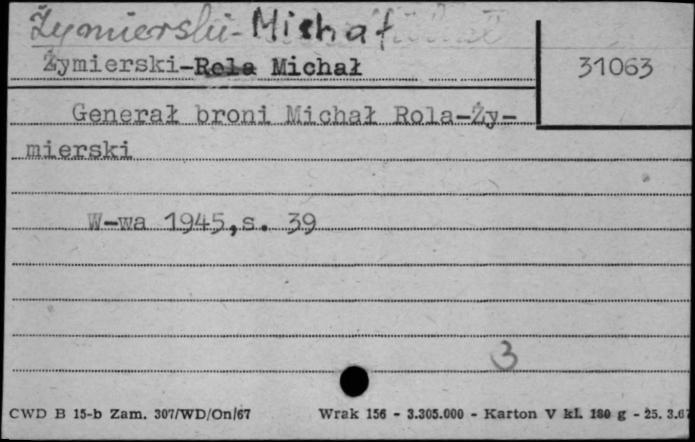 Żymierski-Michał
Żymierski-Rola Michał
31063
Generał broni Michał Rola-Ży-
mierski
W-wa 1945,s. 39
3
CWD B 15-b Zam. 307/WD/On/67 Wrak 156 - 3.305.000 - Karton V kl. 180 g - 25. 3.67